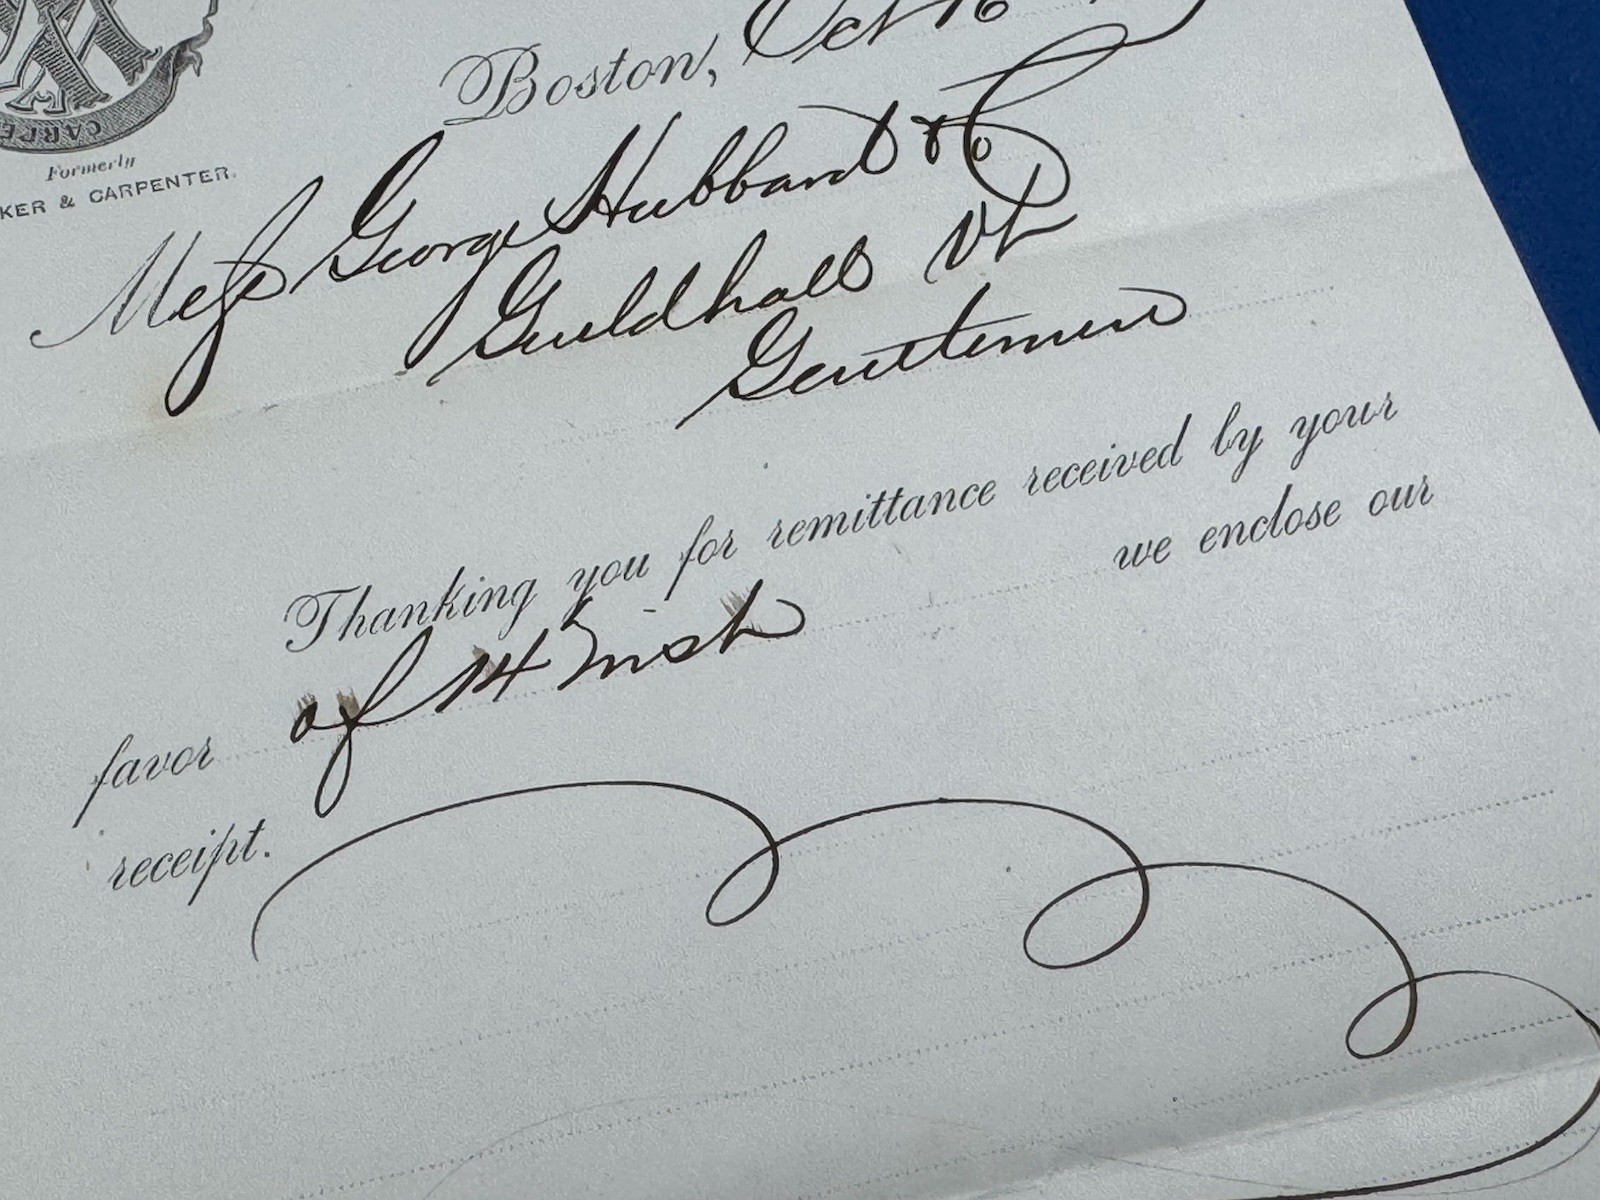 CARPE
Formerly
KER & CARPENTER.
Boston, Oct 16
Mess George Hubbard & Co
Guildhall Vt
Gentlemen
Thanking you for remittance received by your
favor of 14 inst we enclose our
receipt.